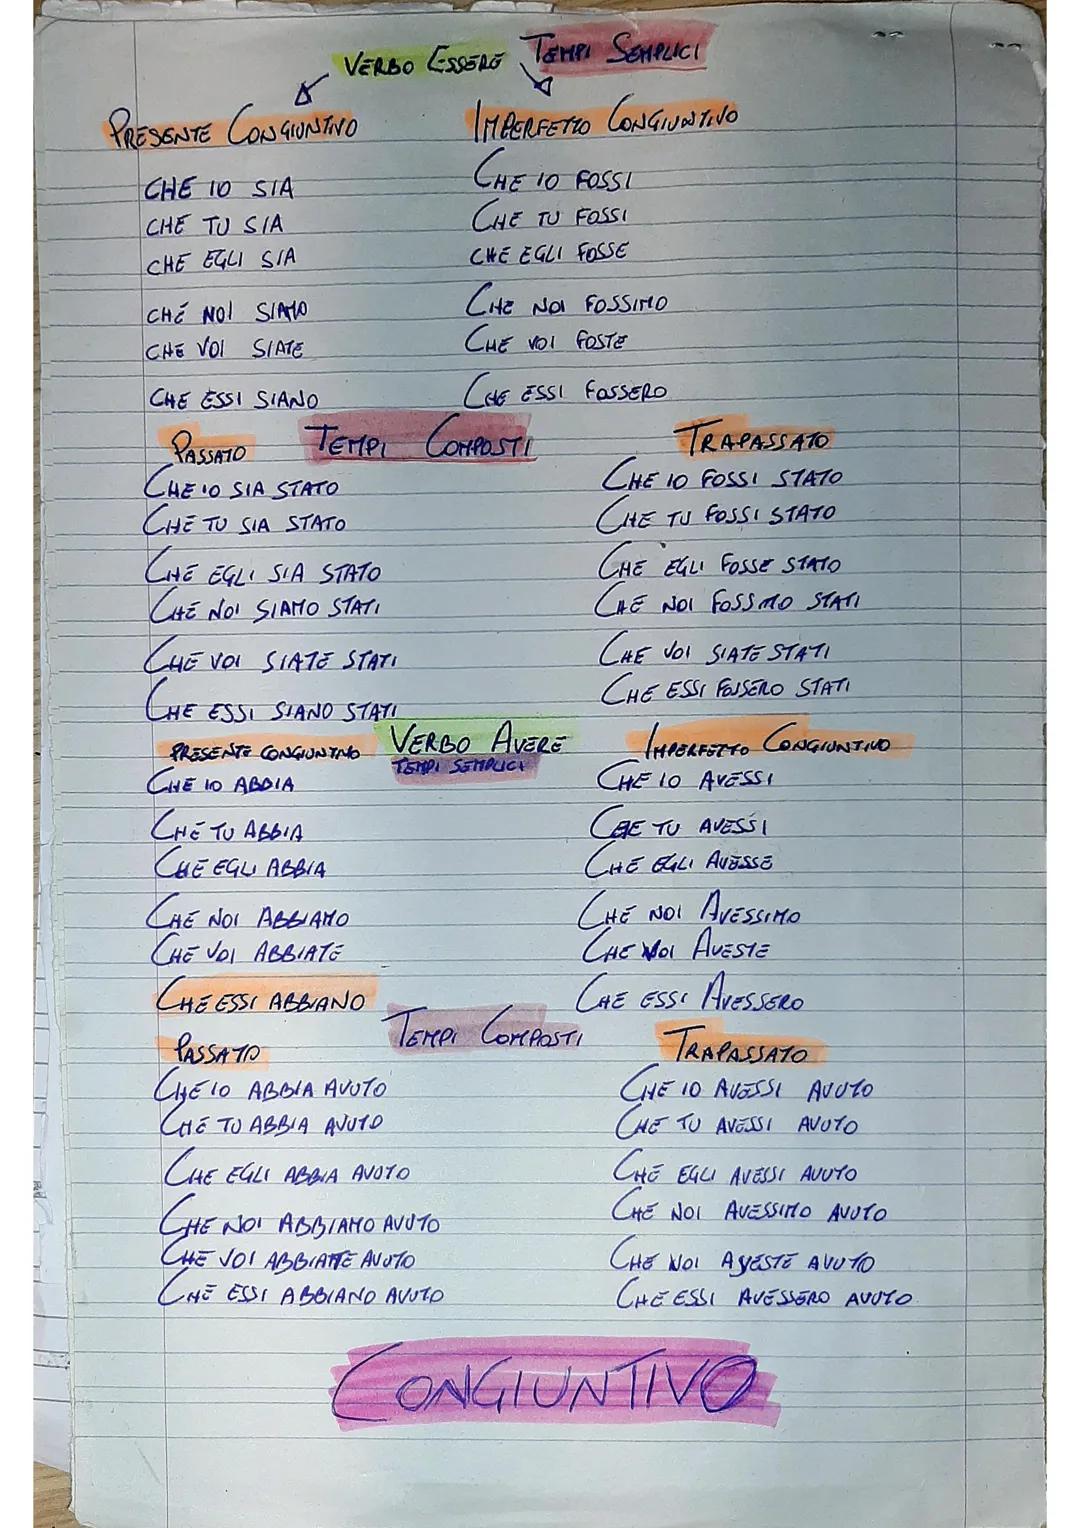 VERBO ESSERE TEMPI SEMPLICI
PRESENTE CONGIUNTIVO IMPERFETTO CONGIUNTIVO
CHE IO SIA CHE IO FOSSI
CHE TU SIA CHE TU FOSSI
CHE EGLI SIA CHE EGLI FOSSE
CHE NOI SIAMO CHE NOI FOSSIMO
CHE VOI SIATE CHE VOI FOSTE
CHE ESSI SIANO CHE ESSI FOSSERO
PASSATO TEMPI COMPOSTI TRAPASSATO
CHE IO SIA STATO CHE IO FOSSI STATO
CHE TU SIA STATO CHE TU FOSSI STATO
CHE EGLI SIA STATO CHE EGLI FOSSE STATO
CHE NOI SIAMO STATI CHE NOI FOSSIMO STATI
CHE VOI SIATE STATI CHE VOI SIATE STATI
CHE ESSI SIANO STATI CHE ESSI FOSSERO STATI
PRESENTE CONGIUNTIVO VERBO AVERE IMPERFETTO CONGIUNTIVO
TEMPI SEMPLICI
CHE IO ABBIA CHE IO AVESSI
CHE TU ABBIA CHE TU AVESSI
CHE EGLI ABBIA CHE EGLI AVESSE
CHE NOI ABBIAMO CHE NOI AVESSIMO
CHE VOI ABBIATE CHE VOI AVESTE
CHE ESSI ABBIANO CHE ESSI AVESSERO
PASSATO TEMPI COMPOSTI TRAPASSATO
CHE IO ABBIA AVUTO CHE IO AVESSI AVUTO
CHE TU ABBIA AVUTO CHE TU AVESSI AVUTO
CHE EGLI ABBIA AVUTO CHE EGLI AVESSI AVUTO
CHE NOI ABBIAMO AVUTO CHE NOI AVESSIMO AVUTO
CHE VOI ABBIATE AVUTO CHE NOI AVESTE AVUTO
CHE ESSI ABBIANO AVUTO CHE ESSI AVESSERO AVUTO
CONGIUNTIVO